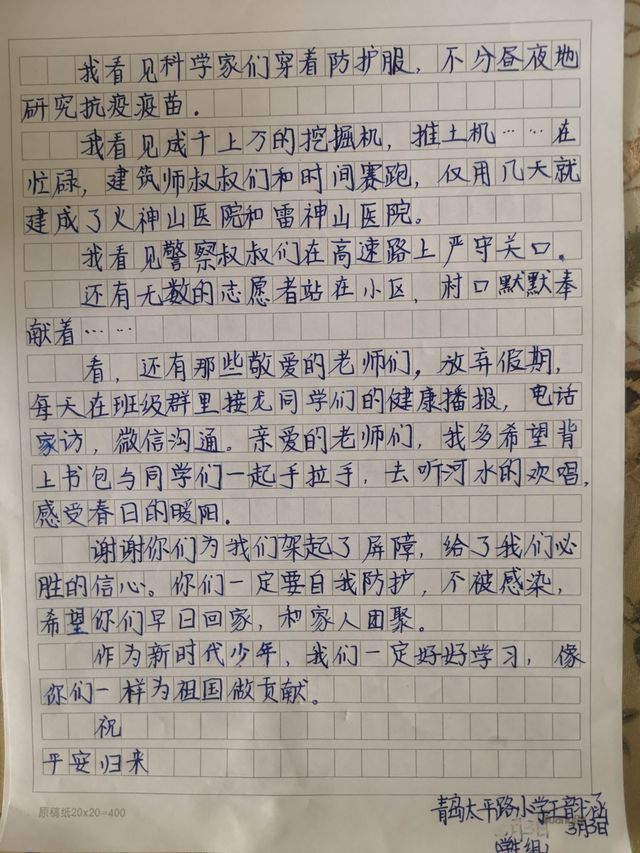 我看见科学家们穿着防护服，不分昼夜地
研究抗疫疫苗．
我看见成千上万的挖掘机，推土机……在
忙碌，建筑师叔叔们和时间赛跑，仅用几天就
建成了火神山医院和雷神山医院。
我看见警察叔叔们在高速路上严守关口．
还有无数的志愿者站在小区，村口默默奉
献着……
看，还有那些敬爱的老师们，放弃假期，
每天在班级群里接龙同学们的健康播报，电话
家访，微信沟通。亲爱的老师们，我多希望背
上书包与同学们一起手拉手，去听河水的欢唱，
感受春日的暖阳．
谢谢你们为我们架起了屏障，给了我们必
胜的信心。你们一定要自我防护，不被感染，
希望你们早日回家，和家人团聚。
作为新时代少年，我们一定好好学习，像
你们一样为祖国做贡献。
祝
平安归来
原稿纸20x20=400
青岛太平路小学王韵涵
3月3日